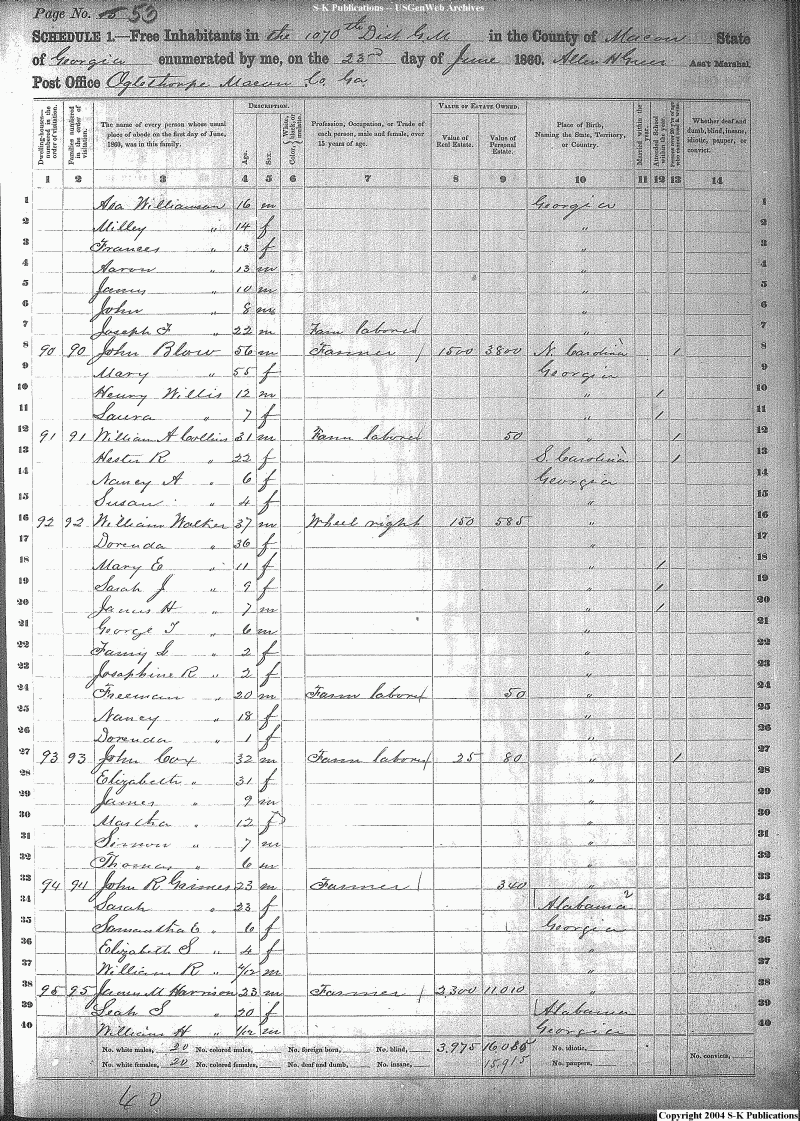 S-K Publications -- USGenWeb Archives
Page No. 53
SCHEDULE 1.—Free Inhabitants in the 1070th Dist G.M in the County of Macon State
of Georgia enumerated by me, on the 23rd day of June 1860. Allen H Greer Ass't Marshal.
Post Office Oglethorpe Macon Co. Ga
Dwelling-houses—numbered in the order of visitation.
Families numbered in the order of visitation.
The name of every person whose usual place of abode on the first day of June, 1860, was in this family.
DESCRIPTION.
Age.
Sex.
Color, White, black, or mulatto.
Profession, Occupation, or Trade of each person, male and female, over 15 years of age.
VALUE OF ESTATE OWNED.
Value of Real Estate.
Value of Personal Estate.
Place of Birth, Naming the State, Territory, or Country.
Married within the year.
Attended School within the year.
Whether deaf and dumb, blind, insane, idiotic, pauper, or convict.
1 2 3 4 5 6 7 8 9 10 11 12 13 14
1 Asa Williamson 16 m Georgia 1
2 Milley " 14 f " 2
3 Frances " 13 f " 3
4 Aaron " 13 m " 4
5 James " 10 m " 5
6 John " 8 m " 6
7 Joseph F " 22 m Farm laborer " 7
8 90 90 John Blow 56 m Farmer / 1500 3800 N. Carolina / 8
9 Mary " 55 f Georgia 9
10 Henry Willis 12 m " / 10
11 Laura " 7 f " / 11
12 91 91 William A Collins 31 m Farm laborer 50 " / 12
13 Hester R " 22 f S. Carolina / 13
14 Nancy A " 6 f Georgia 14
15 Susan " 4 f " 15
16 92 92 William Walker 37 m Wheel right 150 585 " 16
17 Dorenda " 36 f " 17
18 Mary E " 11 f " / 18
19 Sarah J " 9 f " / 19
20 James H " 7 m " / 20
21 George T " 6 m " 21
22 Fanny L " 2 f " 22
23 Josephine R " 2 f " 23
24 Freeman " 20 m Farm laborer 50 " 24
25 Nancy " 18 f " 25
26 Dorenda " 1 f " 26
27 93 93 John Cox 32 m Farm laborer 25 80 " / 27
28 Elizabeth " 31 f " 28
29 James " 9 m " 29
30 Martha " 12 f " 30
31 Simon " 7 m " 31
32 Thomas " 6 m " 32
33 94 94 John R Grimes 23 m Farmer / 340 " 33
34 Sarah " 23 f Alabama 2 34
35 Samantha E " 6 f Georgia 35
36 Elizabeth S " 4 f " 36
37 William R " /12 m " 37
38 95 95 James M Harrison 23 m Farmer / 2,300 11010 " 38
39 Leah S " 20 f Alabama 39
40 William H " /12 m Georgia 40
No. white males, 20 No. colored males, No. foreign born, No. blind, 3,975 16085 No. idiotic,
No. white females, 20 No. colored females, No. deaf and dumb, No. insane, 15,915 No. paupers, No. convicts,
40
Copyright 2004 S-K Publications